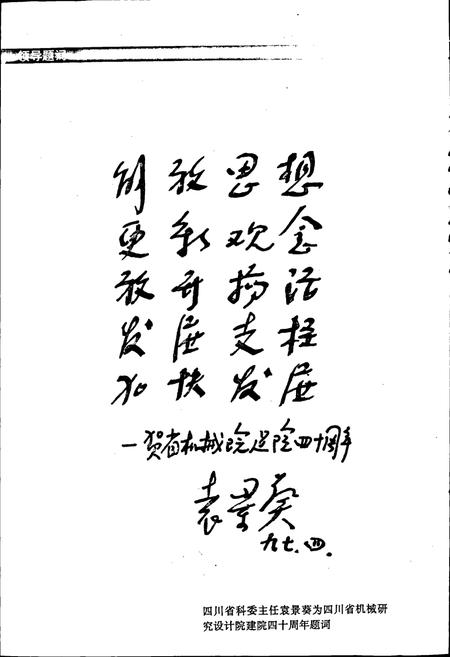 领导题词
解放思想
更新观念
放开搞活
发展支柱
加快发展
—贺省机械院建院四十周年
袁景葵
九七.四.
四川省科委主任袁景葵为四川省机械研
究设计院建院四十周年题词